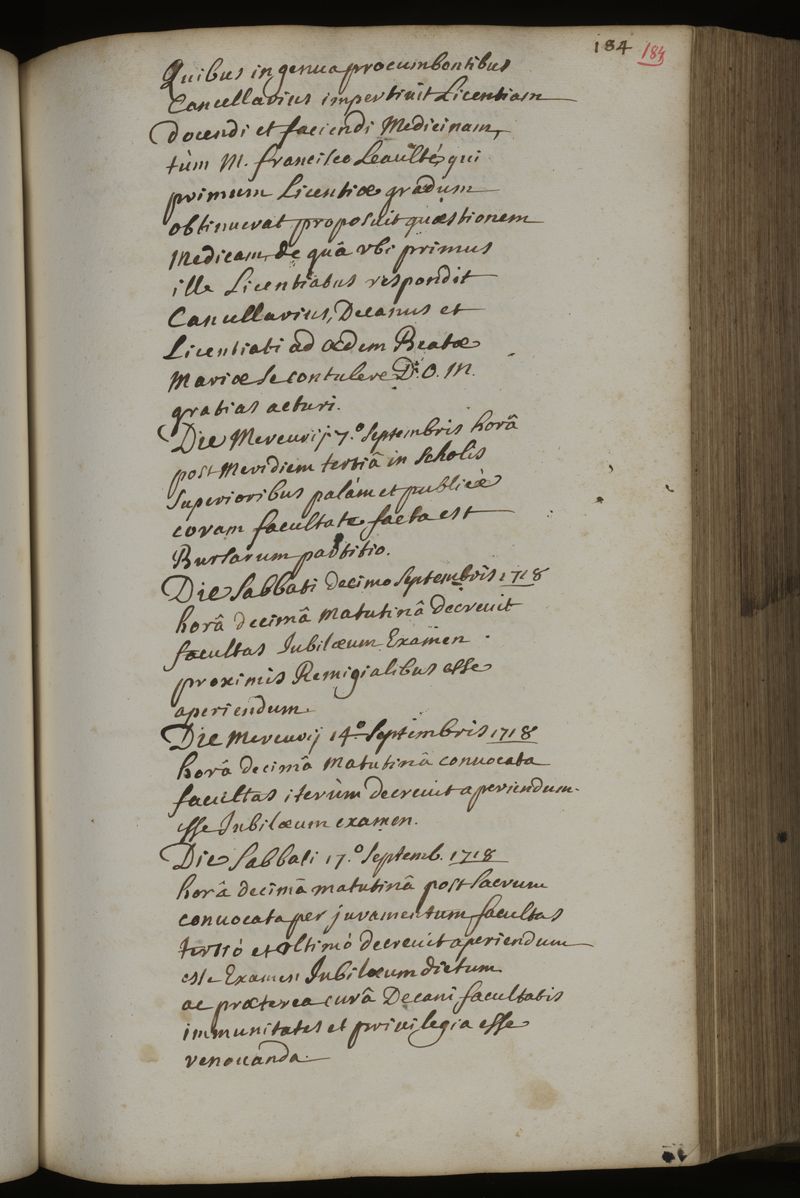 184 184
Quibus in genua procumbentibus
Cancellarius impertiuit Licentiam
docendi et faciendi Medicinam,
tùm M. francisco Leaulté, qui
primum Licentiæ gradum
obtinuerat proposuit quæstionem
Medicam, de quâ vbi primus
ille Licentiatus respondit
Cancellarius, Decanus et
Licentiati ad ædem Beatæ
Mariæ se contulere D. O. M.
gratias acturi.
Die Mercurij 7.º Septembris horâ
post Meridiem tertiâ in Scholis
superioribus palám et publicè
coram facultate facta est
Bursarum partitio.
Die Sabbati decimo Septembris 1718
horâ decimâ matutinâ decreuit
facultas Jubilæum Examen
proximis Remigialibus esse
aperiendum.
Die Mercurij 14.º Septembris 1718
horâ decimâ matutinâ conuocata
facultas iterùm decreuit aperiendum
esse Jubilæum examen.
Die Sabbati 17.º Septemb. 1718
horâ decimâ matutinâ post sacrum
conuocata per juramentum facultas
tertiò et vltimò decreuit aperiendum
esse Examen Jubilæum dictum
ac præterea curâ Decani facultatis
immunitates et priuilegia esse
renouanda.